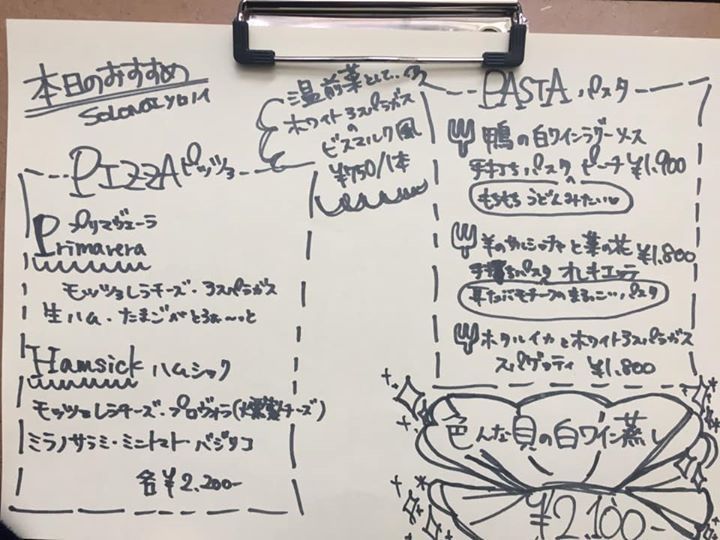 本日のおすすめ
温前菜として、
ホワイトアスパラガス
の
ビスマルク風
¥750/1本
PIZZA ピッツァ
プリマヴェーラ
Primavera
モッツァレラチーズ・アスパラガス
生ハム・たまごがとろぉ〜っと
Hamsick ハムシック
モッツァレラチーズ・プロヴォラ(燻製チーズ)
ミラノサラミ・ミニトマト・バジリコ
各¥2,200-
PASTA パスタ
鴨の白ワインラグーソース
手打ちパスタのピーチ ¥1,900
もちもちうどんみたい♡
羊のサルシッチャと菜の花 ¥1,800
手打ちパスタ オレキエッテ
耳たぶモチーフのまるっこいパスタ
ホタルイカとホワイトアスパラガス
スパゲッティ ¥1,800
色んな貝の白ワイン蒸し
¥2,100-